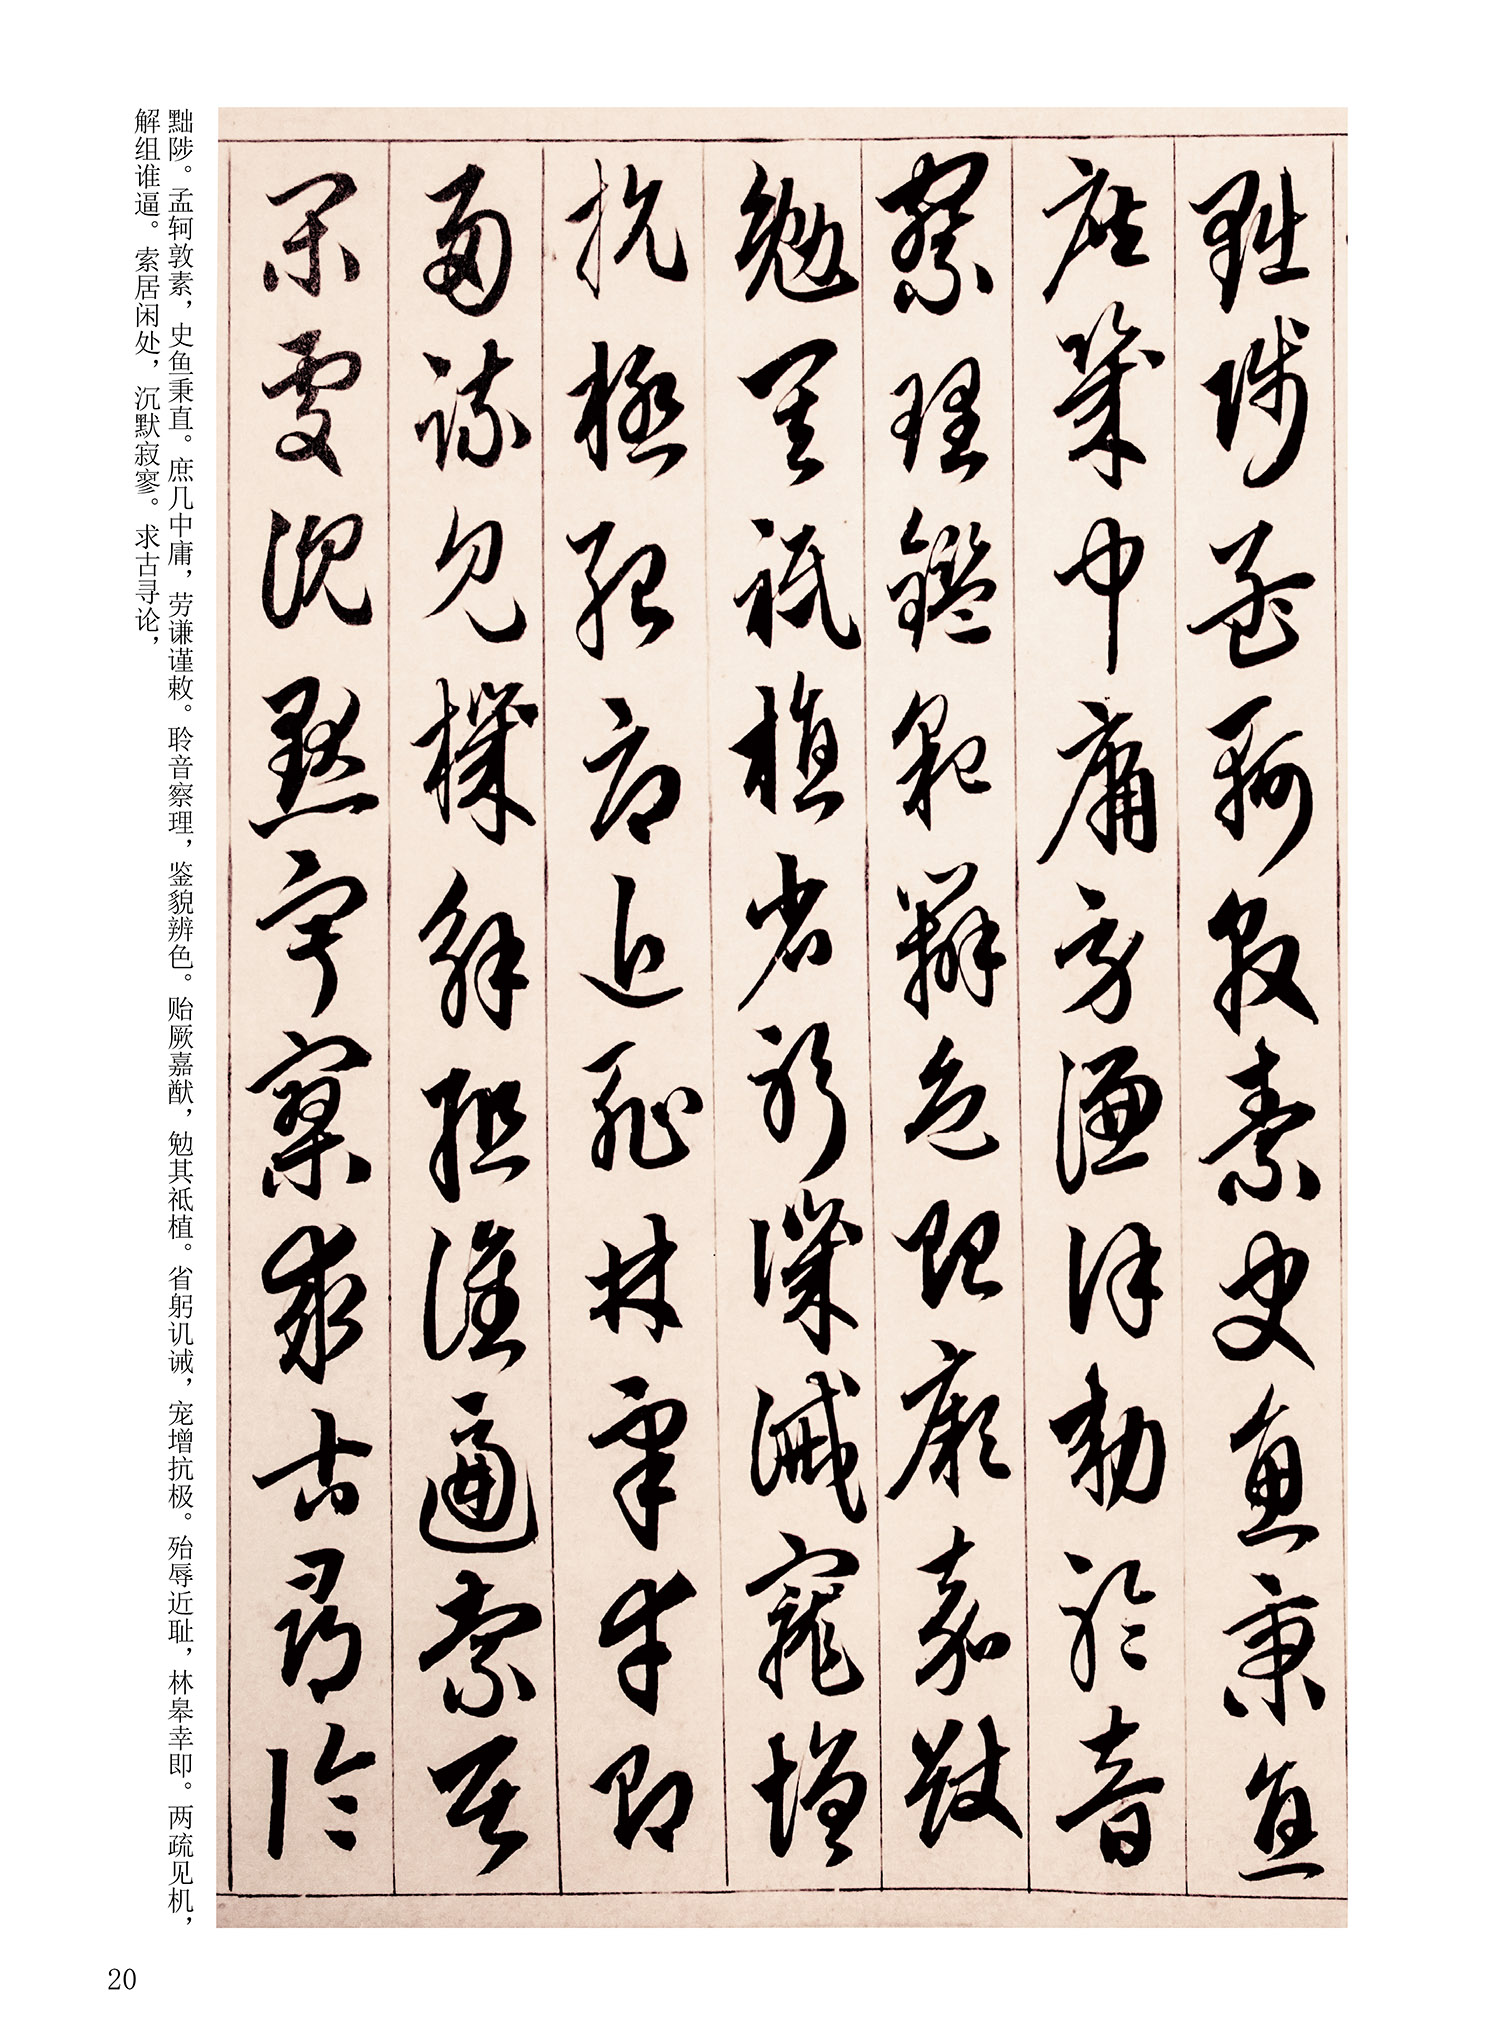 黜陟孟軻敦素史魚秉直
庶幾中庸勞謙謹勅聆音
察理鑑貌辨色貽厥嘉猷
勉其祗植省躬譏誡寵增
抗極殆辱近耻林皋幸即
兩疏見機解組誰逼索居
閑處沈默寂寥求古尋論
黜陟。孟轲敦素，史鱼秉直。庶几中庸，劳谦谨敕。聆音察理，鉴貌辨色。贻厥嘉猷，勉其祗植。省躬讥诫，宠增抗极。殆辱近耻，林皋幸即。两疏见机，
解组谁逼。索居闲处，沉默寂寥。求古寻论，
20